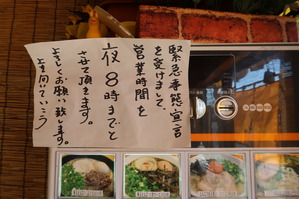 緊急事態宣言
を受けまして、
営業時間を
夜8時までと
させて頂きます。
よろしくお願い致します。